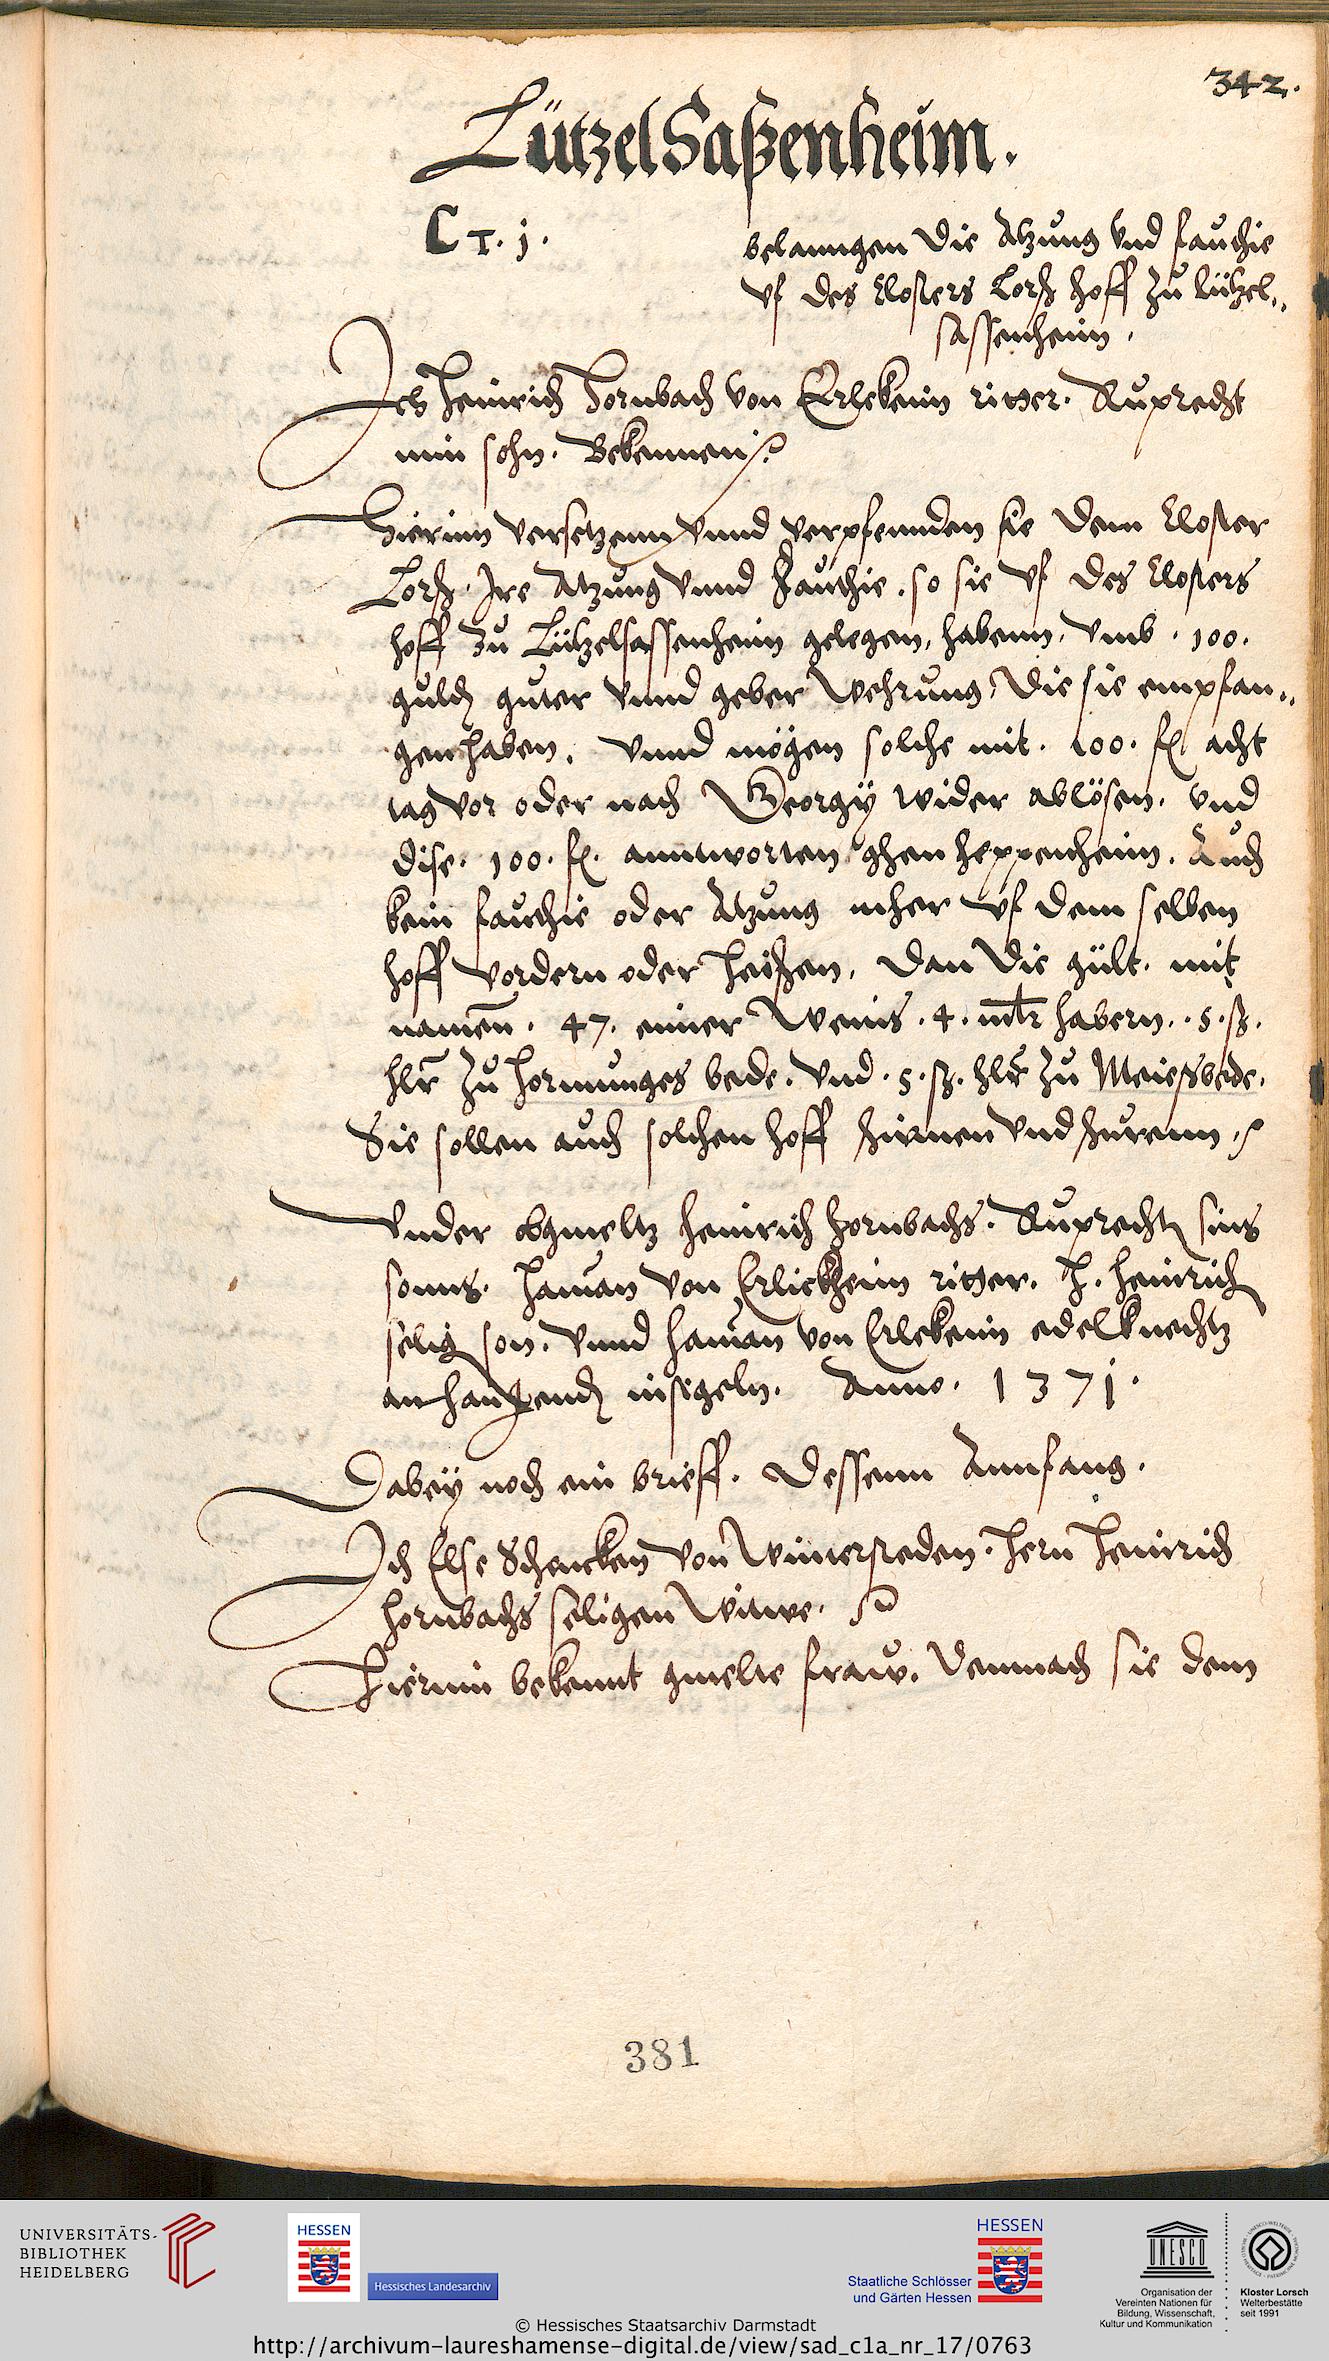 342.
LützelSaßenheim.
C T. j.
belanngen die Atzung vnd fauthie
vf des Closters Lorß hoff zu Lützel„
sassenheim.
Ich Heinrich Hornbach von Erlekeim ritter. Ruprecht
min sohn. Bekennen
Hierinn versetzenn vnnd verpfennden sie dem Closter
Lorß. Ire Atzung vnnd Fauthie. so sie vf des Closters
hoff zu Lützelsassenheim gelegen, habenn, vmb. 100.
guld guter vnnd geber Wehrung, Die sie empfan„
gen haben. vnnd mögen solche mit. 100. fl acht
tag vor oder nach Georgÿ wider ablösen. vnd
dise. 100. fl. anntworten ghen heppenheim. Auch
kein fauthie oder Atzung mher vf dem selben
hoff vordern oder heißen, dan Die gült. mit
namen. 47. eimer Weins. 4. mltr habern. 5. ß.
hlr zu Hornunges bede. vnd. 5. ß. hlr zu Meiesbede.
Sie sollen auch solchen hoff
Vnder obgmeltz Heinrich Hornbachs. Ruprecht sins
sonns. Haman von Erlickheim ritter. H. Heinrich
selig son. vnnd Haman von Erlekeim edelknechtz
anhangend insigeln. Anno. 1371.
Dabeÿ noch ein brieff. Dessenn Annfang.
Ich Else Schencken von Wintersteden. Hern Heinrich
Hornbachs seligen Witwe.
Hierinn bekennt gmelte fraw. Demnach sie dem
381
UNIVERSITÄTS-
BIBLIOTHEK
HEIDELBERG
HESSEN
Hessisches Landesarchiv
HESSEN
Staatliche Schlösser
und Gärten Hessen
UNESCO
Organisation der
Vereinten Nationen für
Bildung, Wissenschaft,
Kultur und Kommunikation
Kloster Lorsch
Welterbestätte
seit 1991
© Hessisches Staatsarchiv Darmstadt
http://archivum-laureshamense-digital.de/view/sad_c1a_nr_17/0763